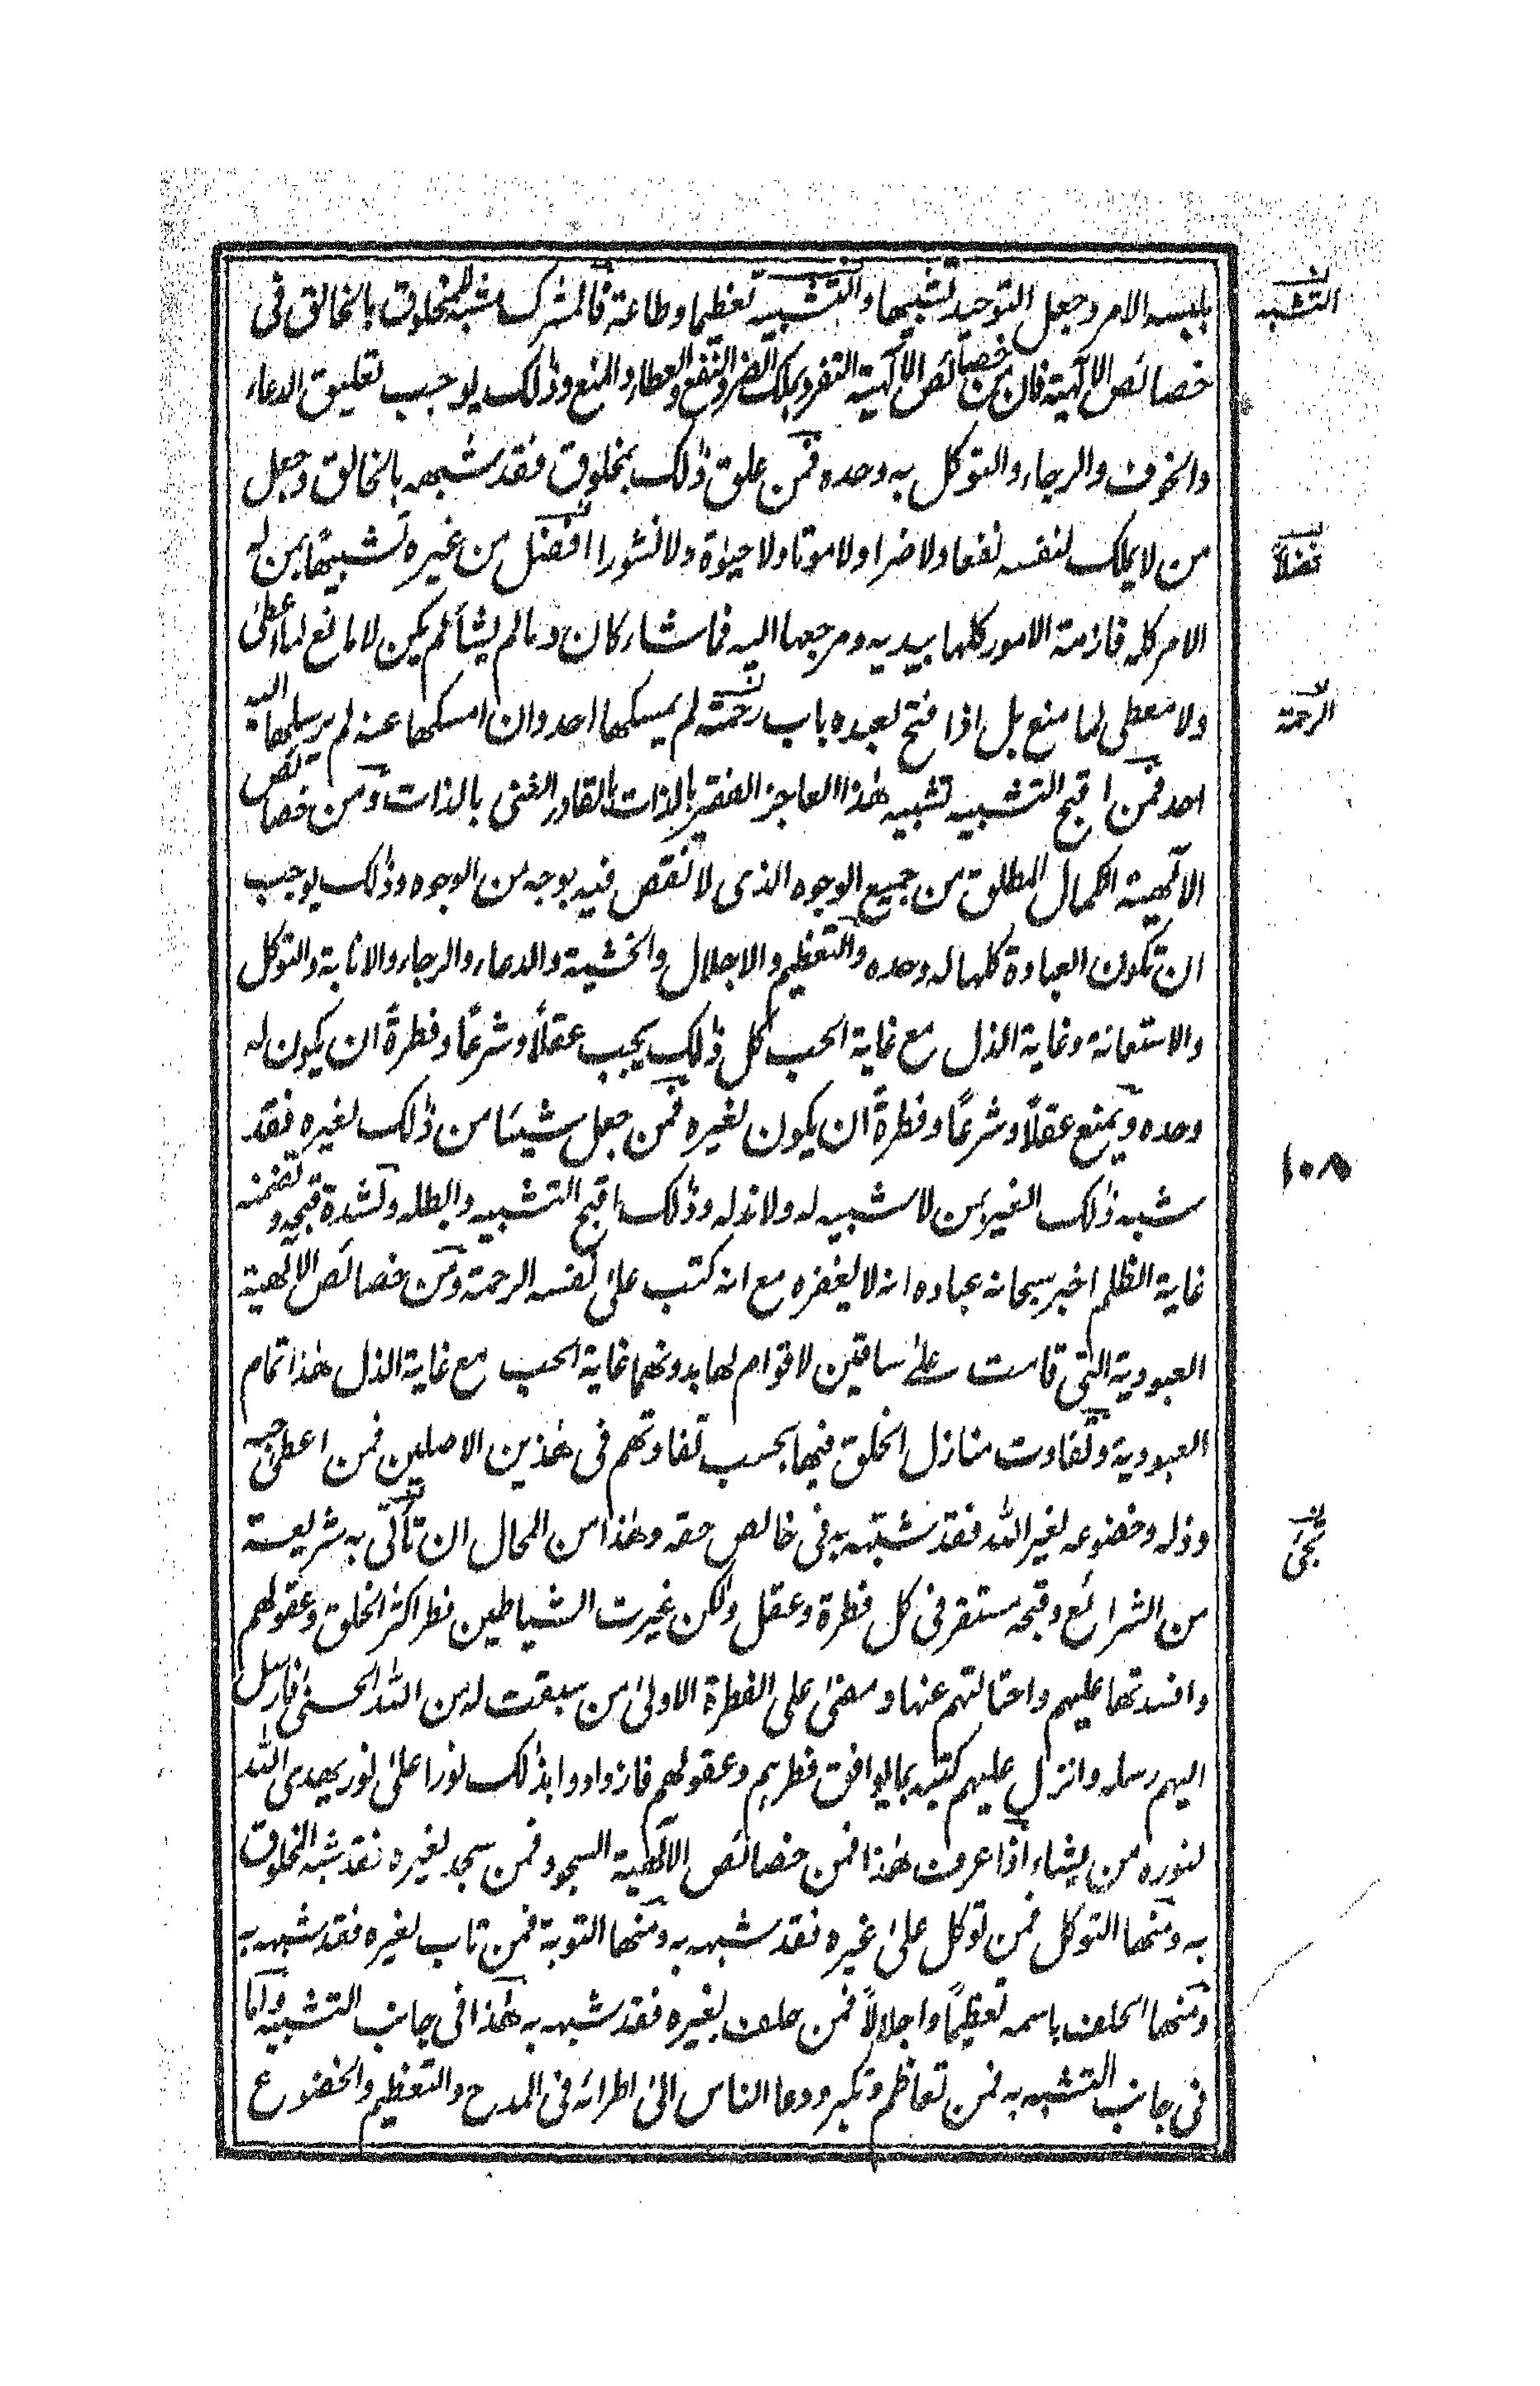 بلبسه الامر وجعل التوحيد تشبيها والتشبيه تعظيما وطاعة فالمشرك مشبه للمخلوق بالخالق فى
التشبه
خصائص الالٰهية فان من خصائص الالٰهية التفرد بملك الضر والنفع والعطاء والمنع وذٰلك يوجب تعليق الدعاء
والخوف والرجاء والتوكل به وحده فمن علق ذٰلك بمخلوق فقد شبهه بالخالق وجعل
من لا يملك لنفسه نفعا ولا ضرا ولا موتا ولا حيٰوة ولا نشورا افضل من غيره تشبيها بمن له
فضلاً
الامر كله فازمة الامور كلها بيديه ومرجعها اليه فما شاء كان وما لم يشأ لم يكن لا مانع لما اعطىٰ
ولا معطى لما منع بل اذا فتح لعبده باب رحمته لم يمسكها احد وان امسكها عنه لم يرسلها اليه
الرحمة
احد فمن اقبح التشبيه تشبيه هٰذا العاجز الفقير بالذات بالقادر الغنى بالذات ومن خصائص
الالٰهية الكمال المطلق من جميع الوجوه الذى لا نقص فيه بوجه من الوجوه وذٰلك يوجب
ان تكون العبادة كلها له وحده والتعظيم والاجلال والخشية والدعاء والرجاء والانابة والتوكل
والاستعانة وغاية الذل مع غاية الحب كل ذٰلك يجب عقلاً وشرعاً وفطرةً ان يكون له
وحده ويمنع عقلاً وشرعاً وفطرةً ان يكون لغيره فمن جعل شيئا من ذٰلك لغيره فقد
١٠٨
شبه ذٰلك الغير بمن لا شبيه له ولا ند له وذٰلك اقبح التشبيه وابطله ولشدة قبحه وتضمنه
غاية الظلم اخبر سبحانه عباده انه لا يغفره مع انه كتب علىٰ نفسه الرحمة ومن خصائص الالٰهية
العبودية التى قامت علىٰ ساقين لا قوام لها بدونهما غاية الحب مع غاية الذل هٰذا تمام
العبودية وتفاوت منازل الخلق فيها بحسب تفاوتهم فى هٰذين الاصلين فمن اعطىٰ حبه
وذله وخضوعه لغير الله فقد شبهه به فى خالص حقه وهٰذا من المحال ان تأتى به شريعة
تجئ
من الشرائع وقبحه مستقر فى كل فطرة وعقل ولكن غيرت الشياطين فطر اكثر الخلق وعقولهم
وافسدتها عليهم واجتالتهم عنها ومضىٰ على الفطرة الاولىٰ من سبقت له من الله الحسنىٰ فارسل
اليهم رسله وانزل عليهم كتبه بما يوافق فطرهم وعقولهم فازدادوا بذٰلك نورا علىٰ نور يهدى الله
لنوره من يشاء اذا عرفت هٰذا فمن خصائص الالٰهية السجود فمن سجد لغيره فقد شبه المخلوق
به ومنها التوكل فمن توكل علىٰ غيره فقد شبهه به ومنها التوبة فمن تاب لغيره فقد شبهه به
ومنها الحلف باسمه تعظيماً واجلالاً فمن حلف بغيره فقد شبهه به هٰذا فى جانب التشبيه واما
فى جانب التشبه به فمن تعاظم وتكبر ودعا الناس الىٰ اطرائه فى المدح والتعظيم والخضوع